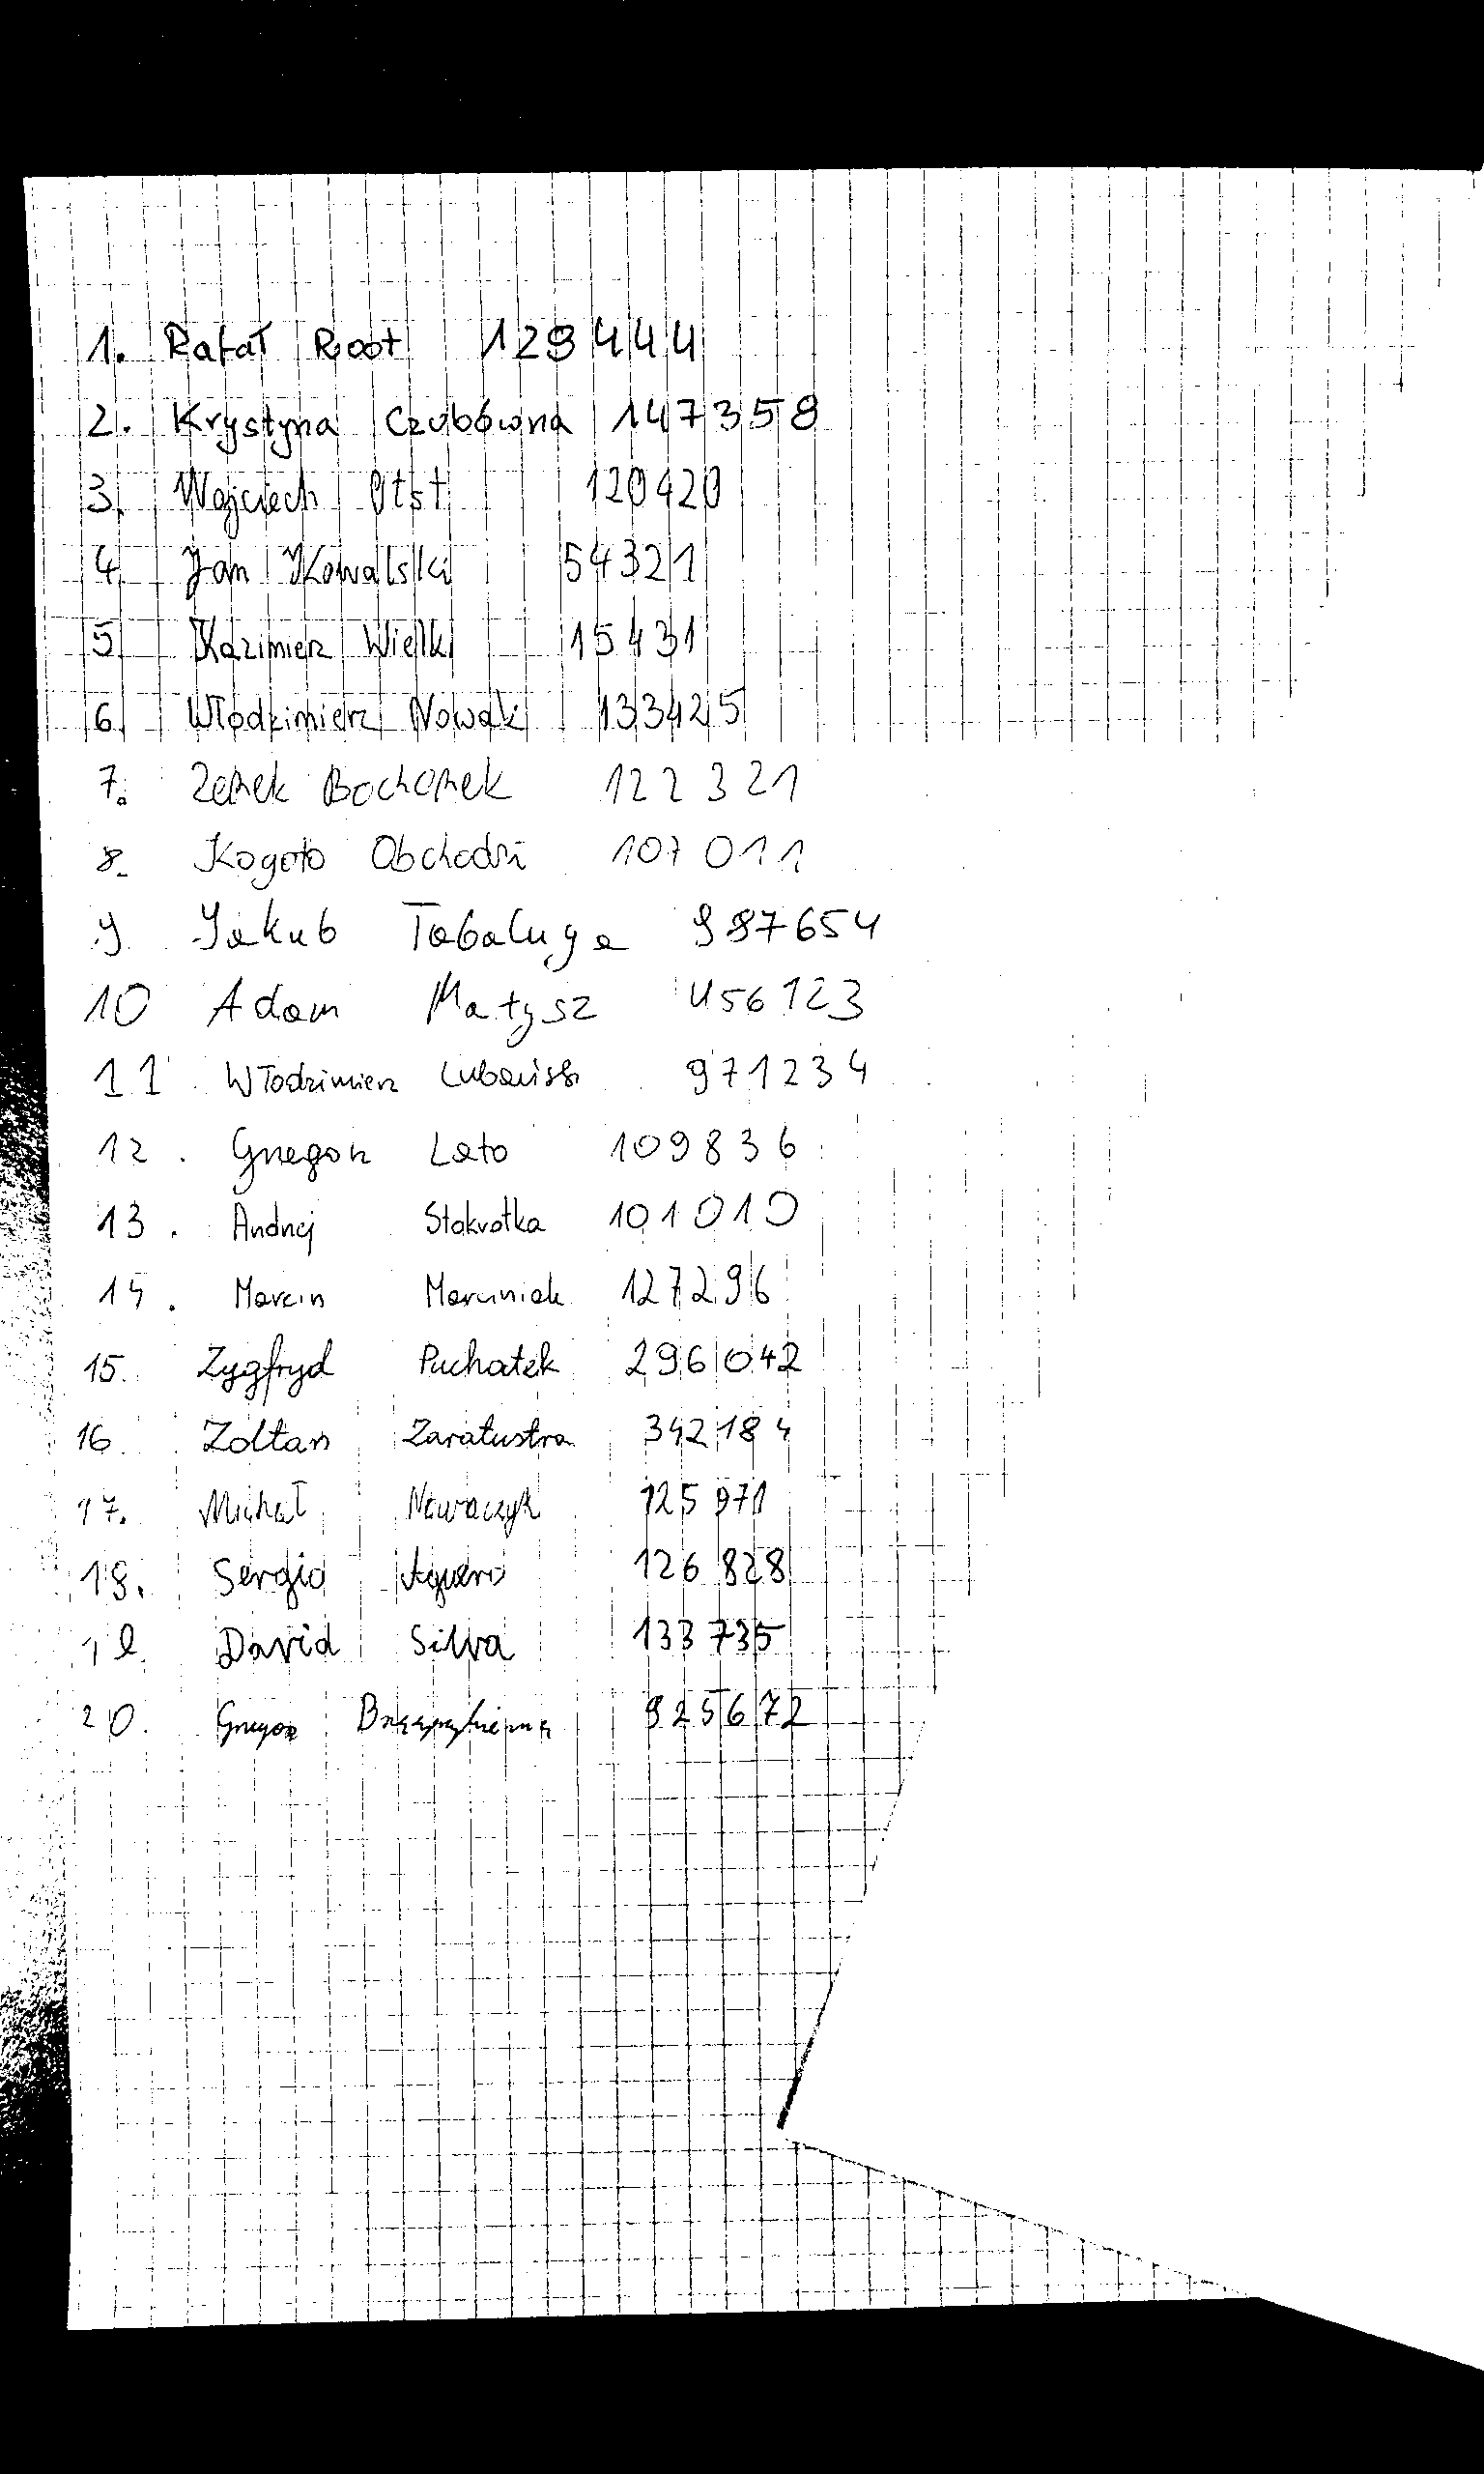 1. Rafał Root 129444
2. Krystyna Czubówna 147358
3. Wojciech Otst 120420
4. Jan Kowalski 54321
5 Kazimierz Wielki 15431
6. Włodzimierz Nowak 133425
7. Zenek Bochenek 122321
8. Kogoto Obchodzi 107011
9. Jakub Tabaluga 987654
10 Adam Małysz 456123
11 Włodzimierz Lubański 971234
12. Grzegorz Lato 109836
13. Andrzej Stokrotka 101010
14. Marcin Marciniak 127296
15. Zygfryd Puchatek 296042
16. Zoltan Zaratustra 342184
17. Michał Nowaczyk 125971
18. Sergio Aguero 126828
19. David Silva 133735
20. Grzegorz 925672